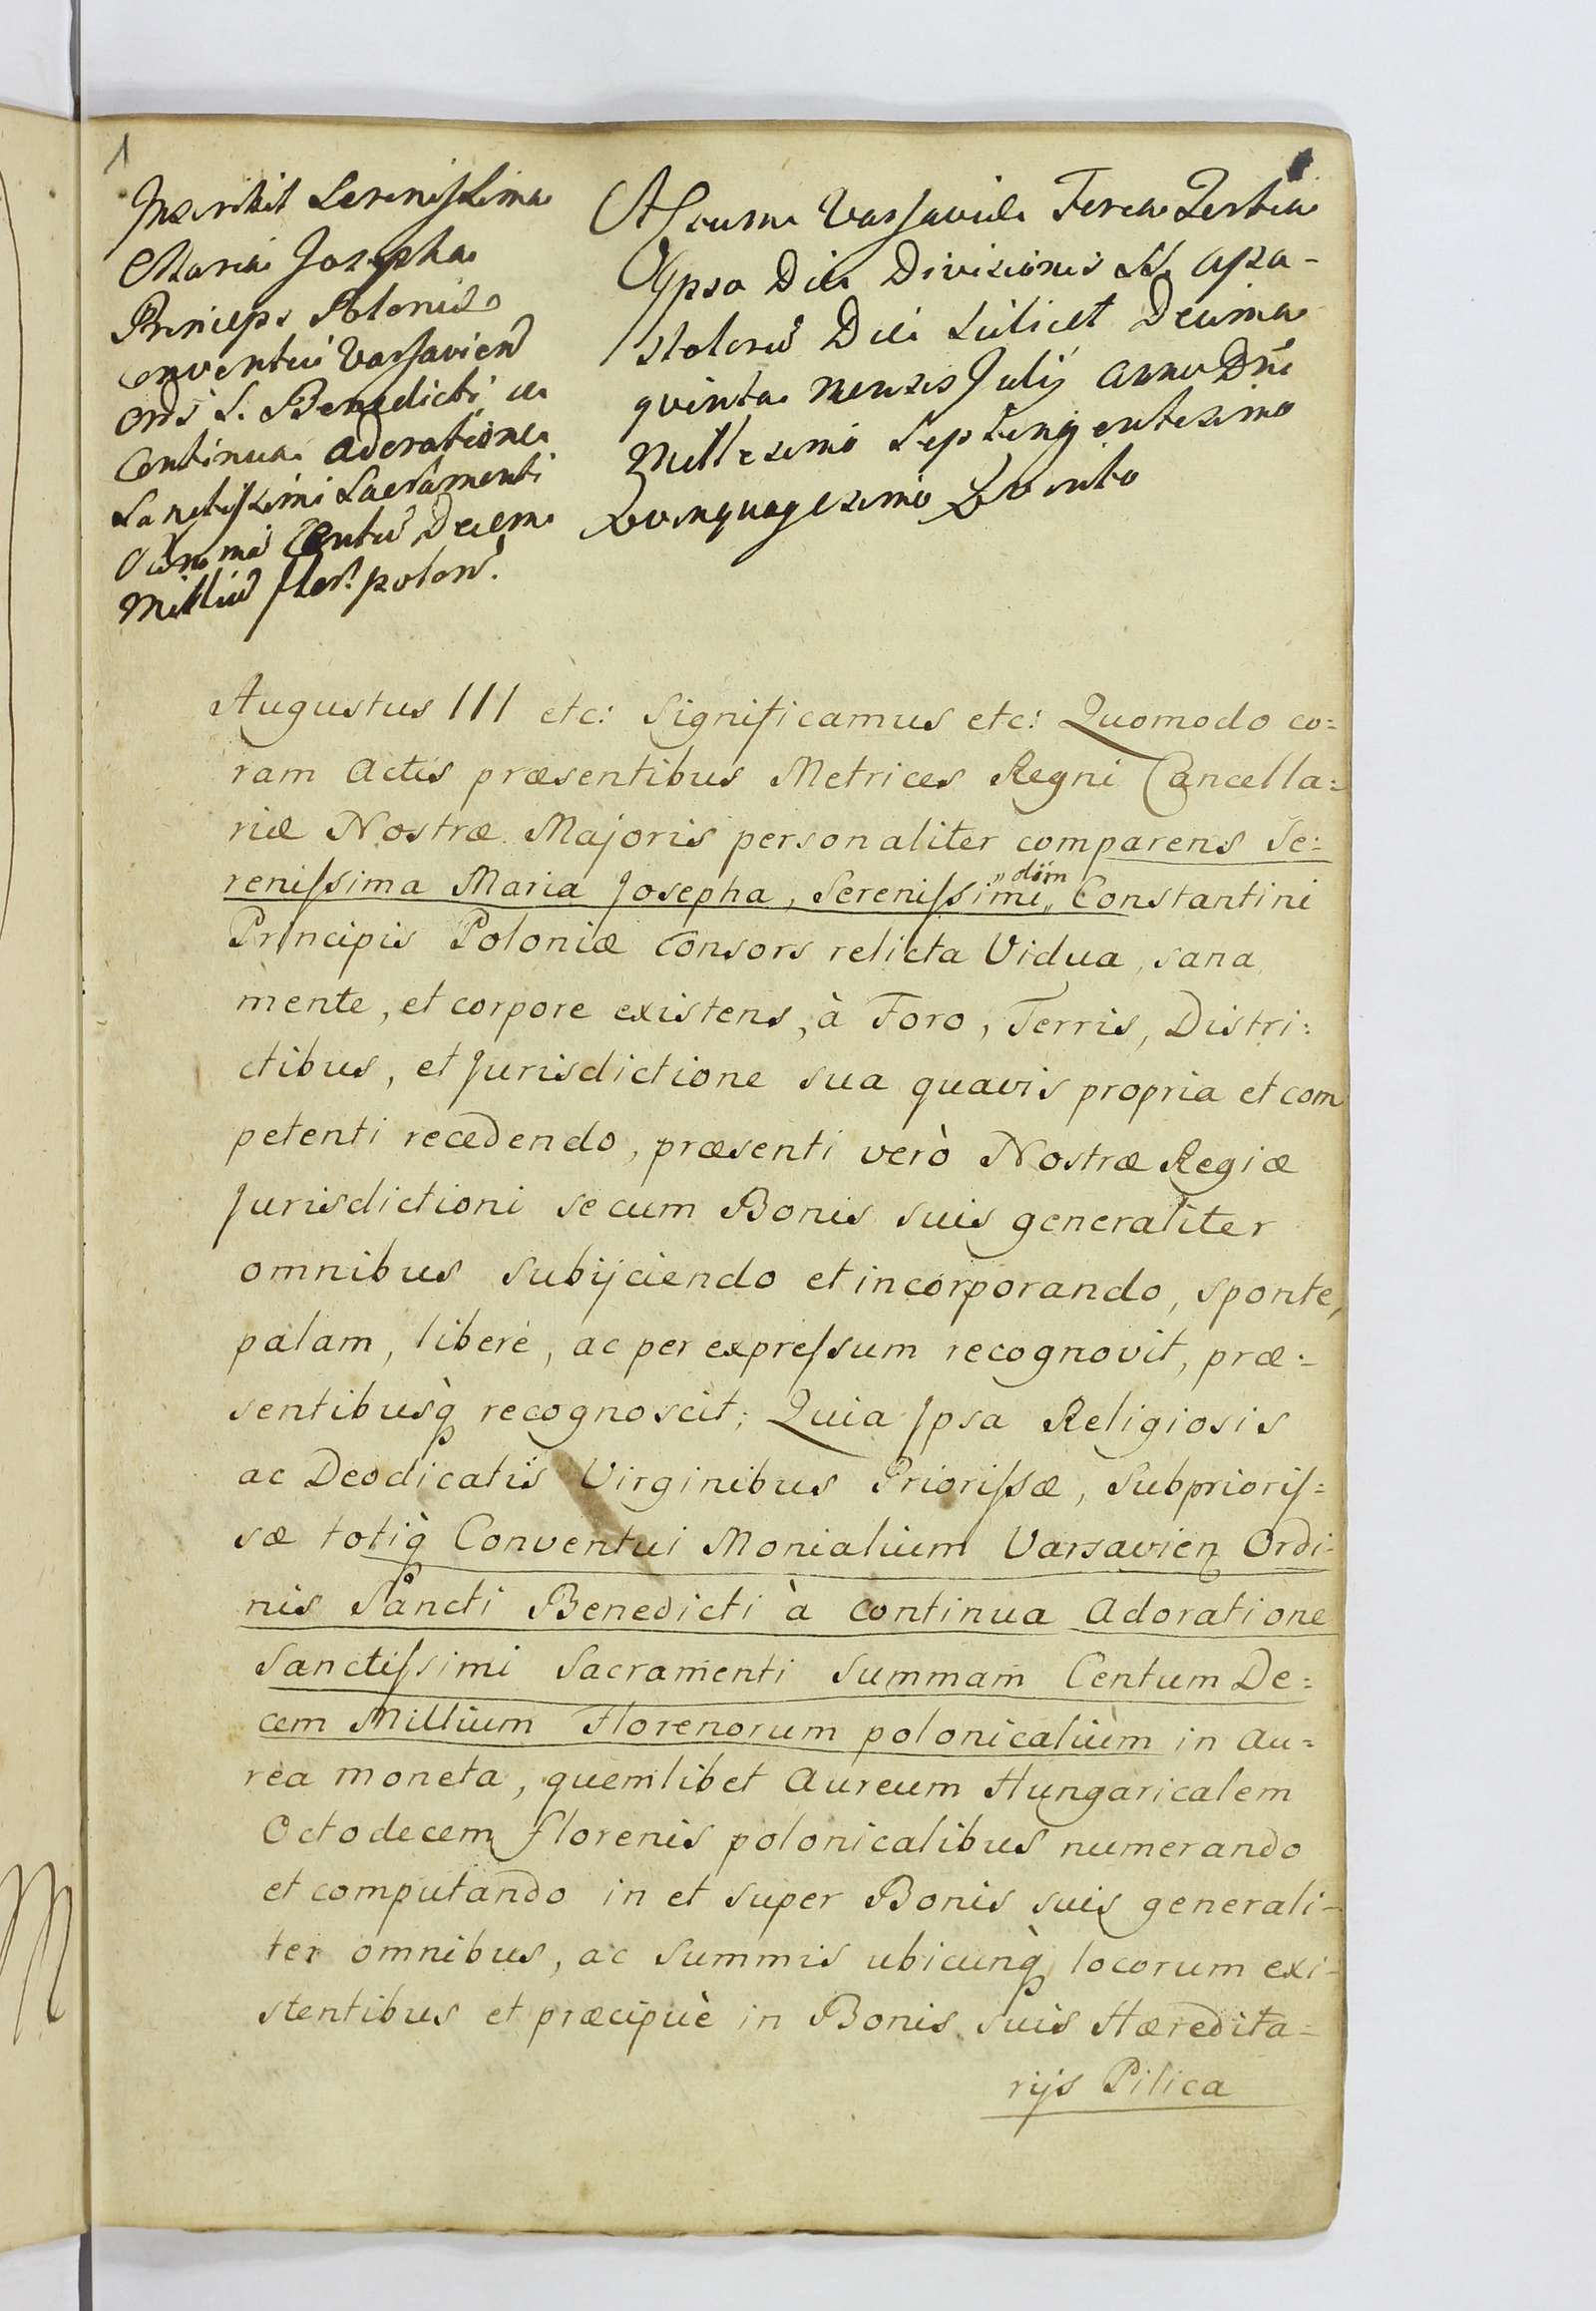 1
Inscribit Serenissima
Maria Josepha
Princeps Poloniæ
Conventui Varsavien̄
Ord̄s S. Benedicti a
Continua Adoratione
Sanctissimi Sacramenti
Centū Decem
Milliū flor: polon̄.
Actum Varsaviæ Feria Tertia
Ipso Die Divisionis SS. Apo-
stolorū Die scilicet Decima
quinta mensis Julij Anno Dn̄i
Millesimo Septingentesimo
Quinquagesimo Quinto
Augustus III etc: Significamus etc: Quomodo co=
ram Actis præsentibus Metrices Regni Cancella=
riæ Nostræ Majoris personaliter comparens Se=
olim
renissima Maria Josepha, Serenissimi Constantini
Principis Poloniæ Consors relicta Vidua, sana
mente, et corpore existens, à Foro, Terris, Distri=
ctibus, et Jurisdictione sua quavis propria et com
petenti recedendo, præsenti verò Nostræ Regiæ
Jurisdictioni se cum Bonis suis generaliter
omnibus subijciendo et incorporando, sponte,
palam, liberè, ac per expressum recognovit, præ=
sentibusq̀ recognoscit; Quia Ipsa Religiosis
ac Deodicatis Virginibus Priorissæ, Subprioris=
sæ totiq̀ Conventui Monialium Varsavien Ordi=
nis Sancti Benedicti à continua Adoratione
Sanctissimi Sacramenti Summam Centum De=
cem Millium Florenorum polonicalium in au=
rea moneta, quemlibet Aureum Hungaricalem
Octodecem florenis polonicalibus numerando
et computando in et super Bonis suis generali-
ter omnibus, ac Summis ubicunq̀ locorum exi-
stentibus et præcipuè in Bonis suis Hæredita=
rijs Pilica